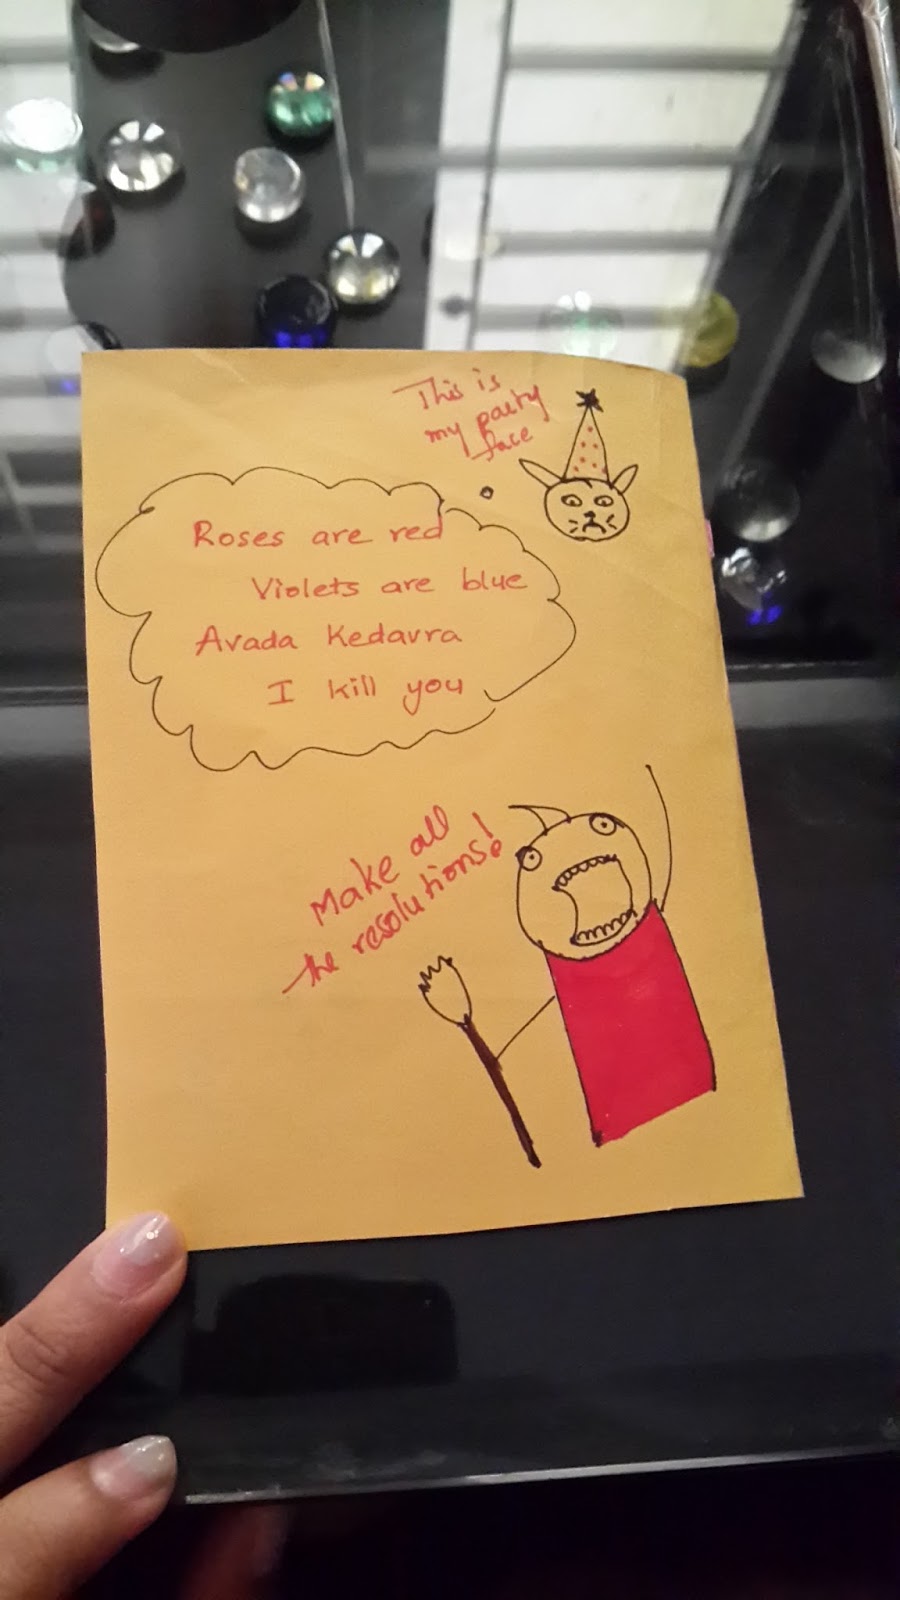 This is
my party
face
Roses are red
Violets are blue
Avada Kedavra
I kill you
Make all
the resolutions!